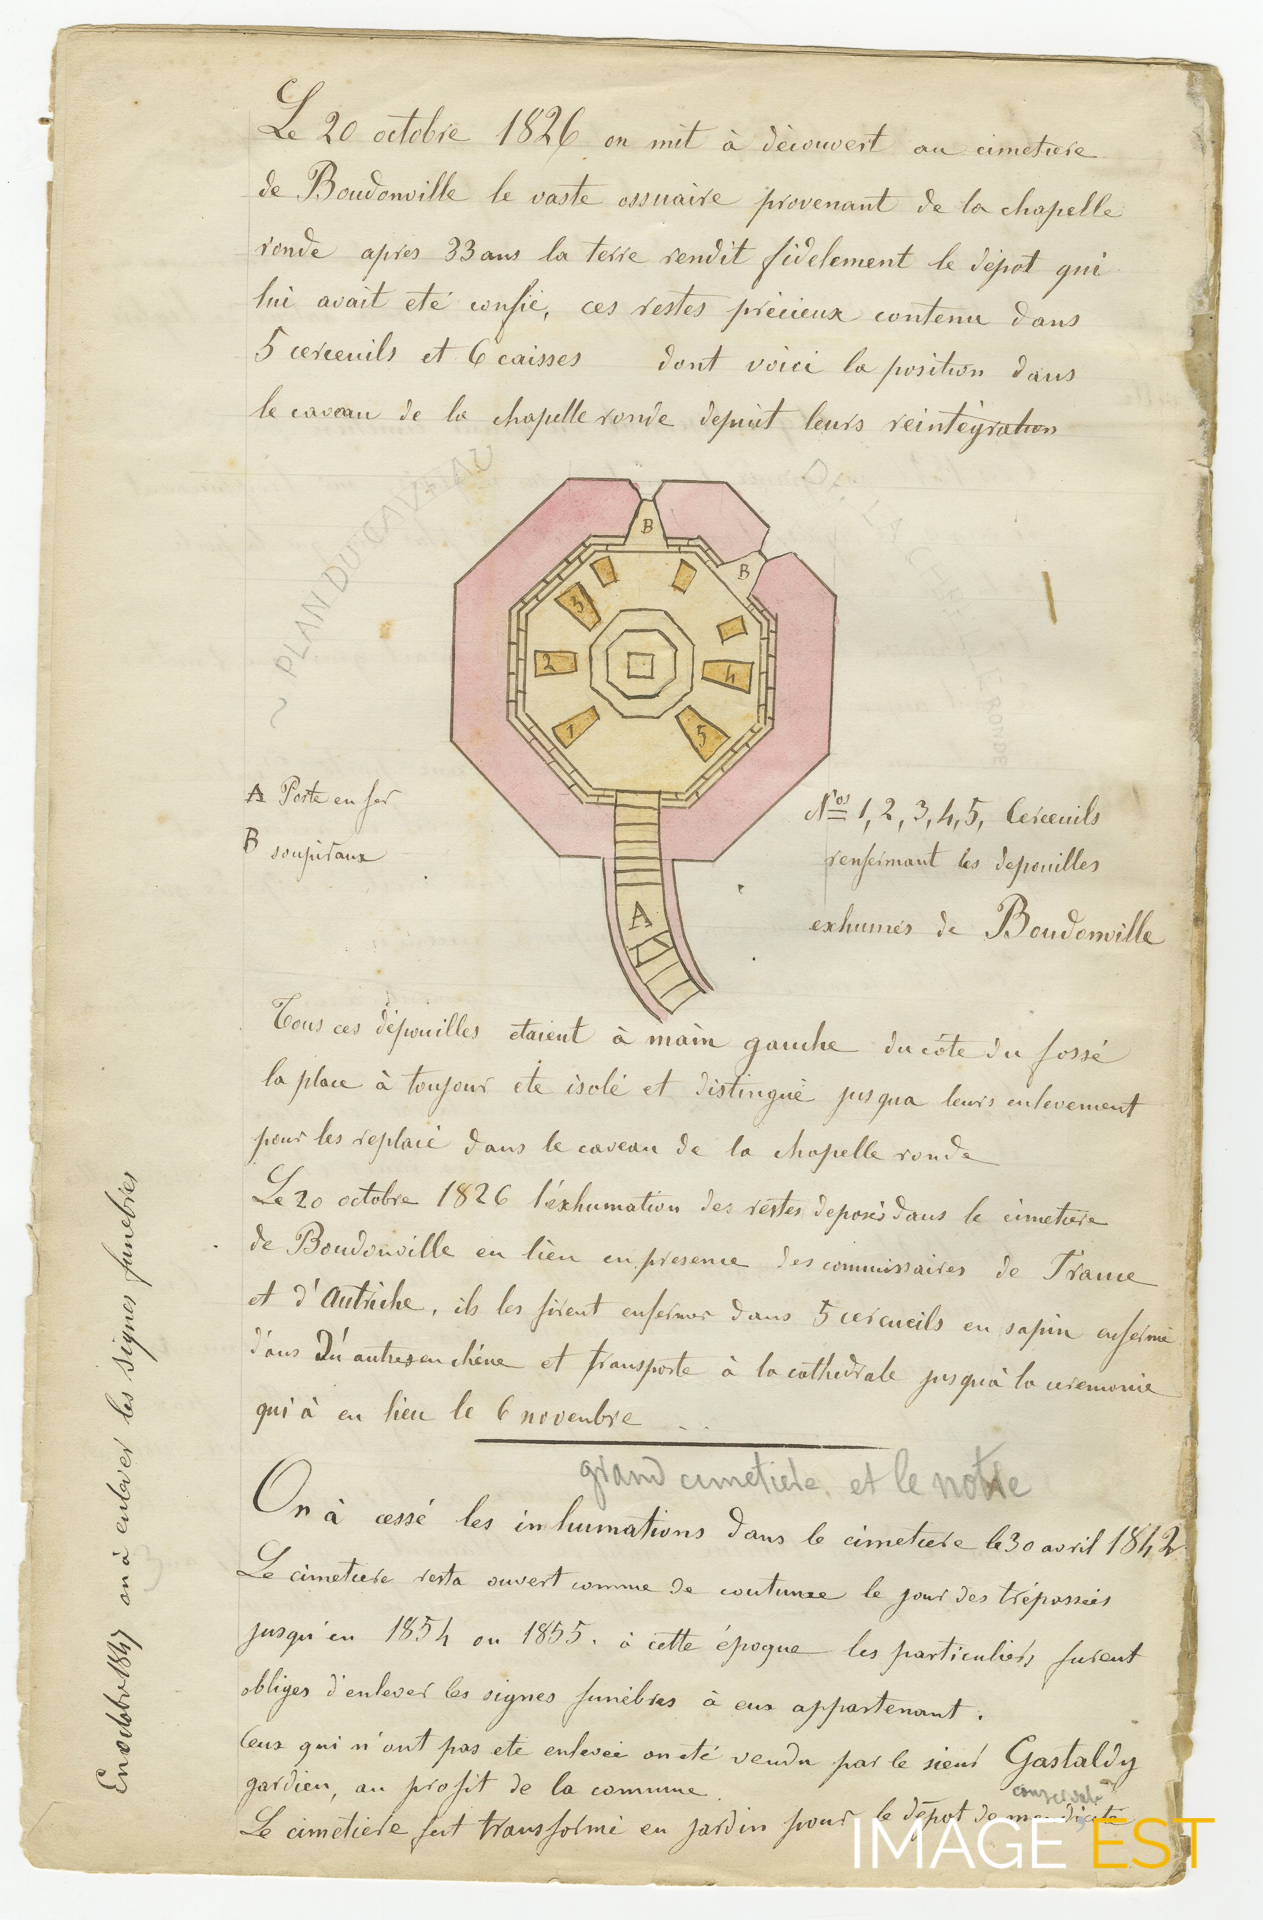 Le 20 octobre 1826 on mit à décuvert au cimetiere
de Boudonville le vaste ossuaire provenant de la chapelle
ronde apres 33 ans la terre rendit fidelement le dépot qui
lui avait eté confié, ces restes précieux contenu dans
5 cerceuils et 6 caisses dont voici la position dans
le caveau de la chapelle ronde depuit leurs reintégration
~ PLAN DU CAVEAU DE LA CHAPELLE RONDE
B
B
3
2
4
1
5
A Porte en fer
B soupiraux
Nos 1, 2, 3, 4, 5, Cerceuils
renfermant les depouilles
exhumés de Boudonville
A
Tous ces dépouilles etaient à main gauche du côte du fossé
la place à toujour ete isolé et distingué jusqua leurs enlevement
pour les replacé dans le caveau de la chapelle ronde
Le 20 octobre 1826 l'éxhumation des restes deposés dans le cimetiere
de Boudonville eu lieu en presence des commissaires de France
et d'Autriche, ils les firent enfermer dans 5 cercueils en sapin enfermé
dans Du autres en chéne et transporte à la cathedrale jusquà la ceremonie
qui à eu lieu le 6 novenbre
grand cimetiere et le notre
On à cessé les inhumations dans le cimetiere le 30 avril 1842
Le cimetiere resta ouvert comme de coutumee le jour des trépassées
jusqu'en 1854 ou 1855. à cette époque les particuliers furent
obliges d'enlever les signes funébres à eux appartenant.
Ceux qui n'ont pas ete enlevée on eté vendu par le sieur Gastaldy
gardien, au profit de la commune
conservale
Le cimetiere fut transformé en jardin pour le dépot de mendicité
En octobre 1847 on à enlever les signes funebres
IMAGE EST